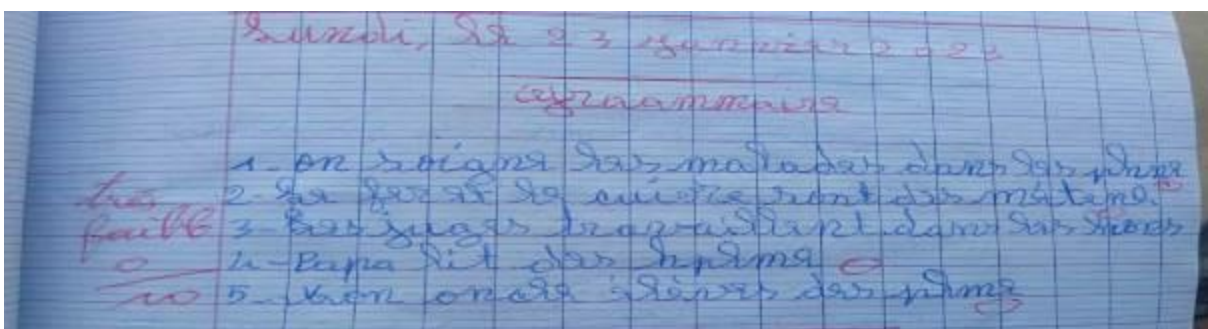 Lundi, le 23 janvier 2023
Graammaire
1- on soigne les malades dans les
très 2- Le fer et le cuivre sont des métane.
faible 3- Les juges travaillent dans les
0 4- Papa lit des
10 5- mon oncle élèves des